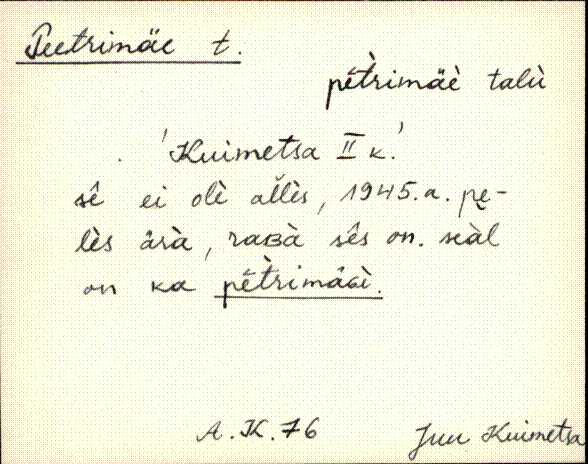 Peetrimäe t.
pétrimäè talù
'Kuimetsa II k.'
sê ei olè aĺlès, 1945.a. pe-
lès ärà, raʙà sês on. seàl
on ka pétrimâɢì.
A.K.76
Juu Kuimetsa